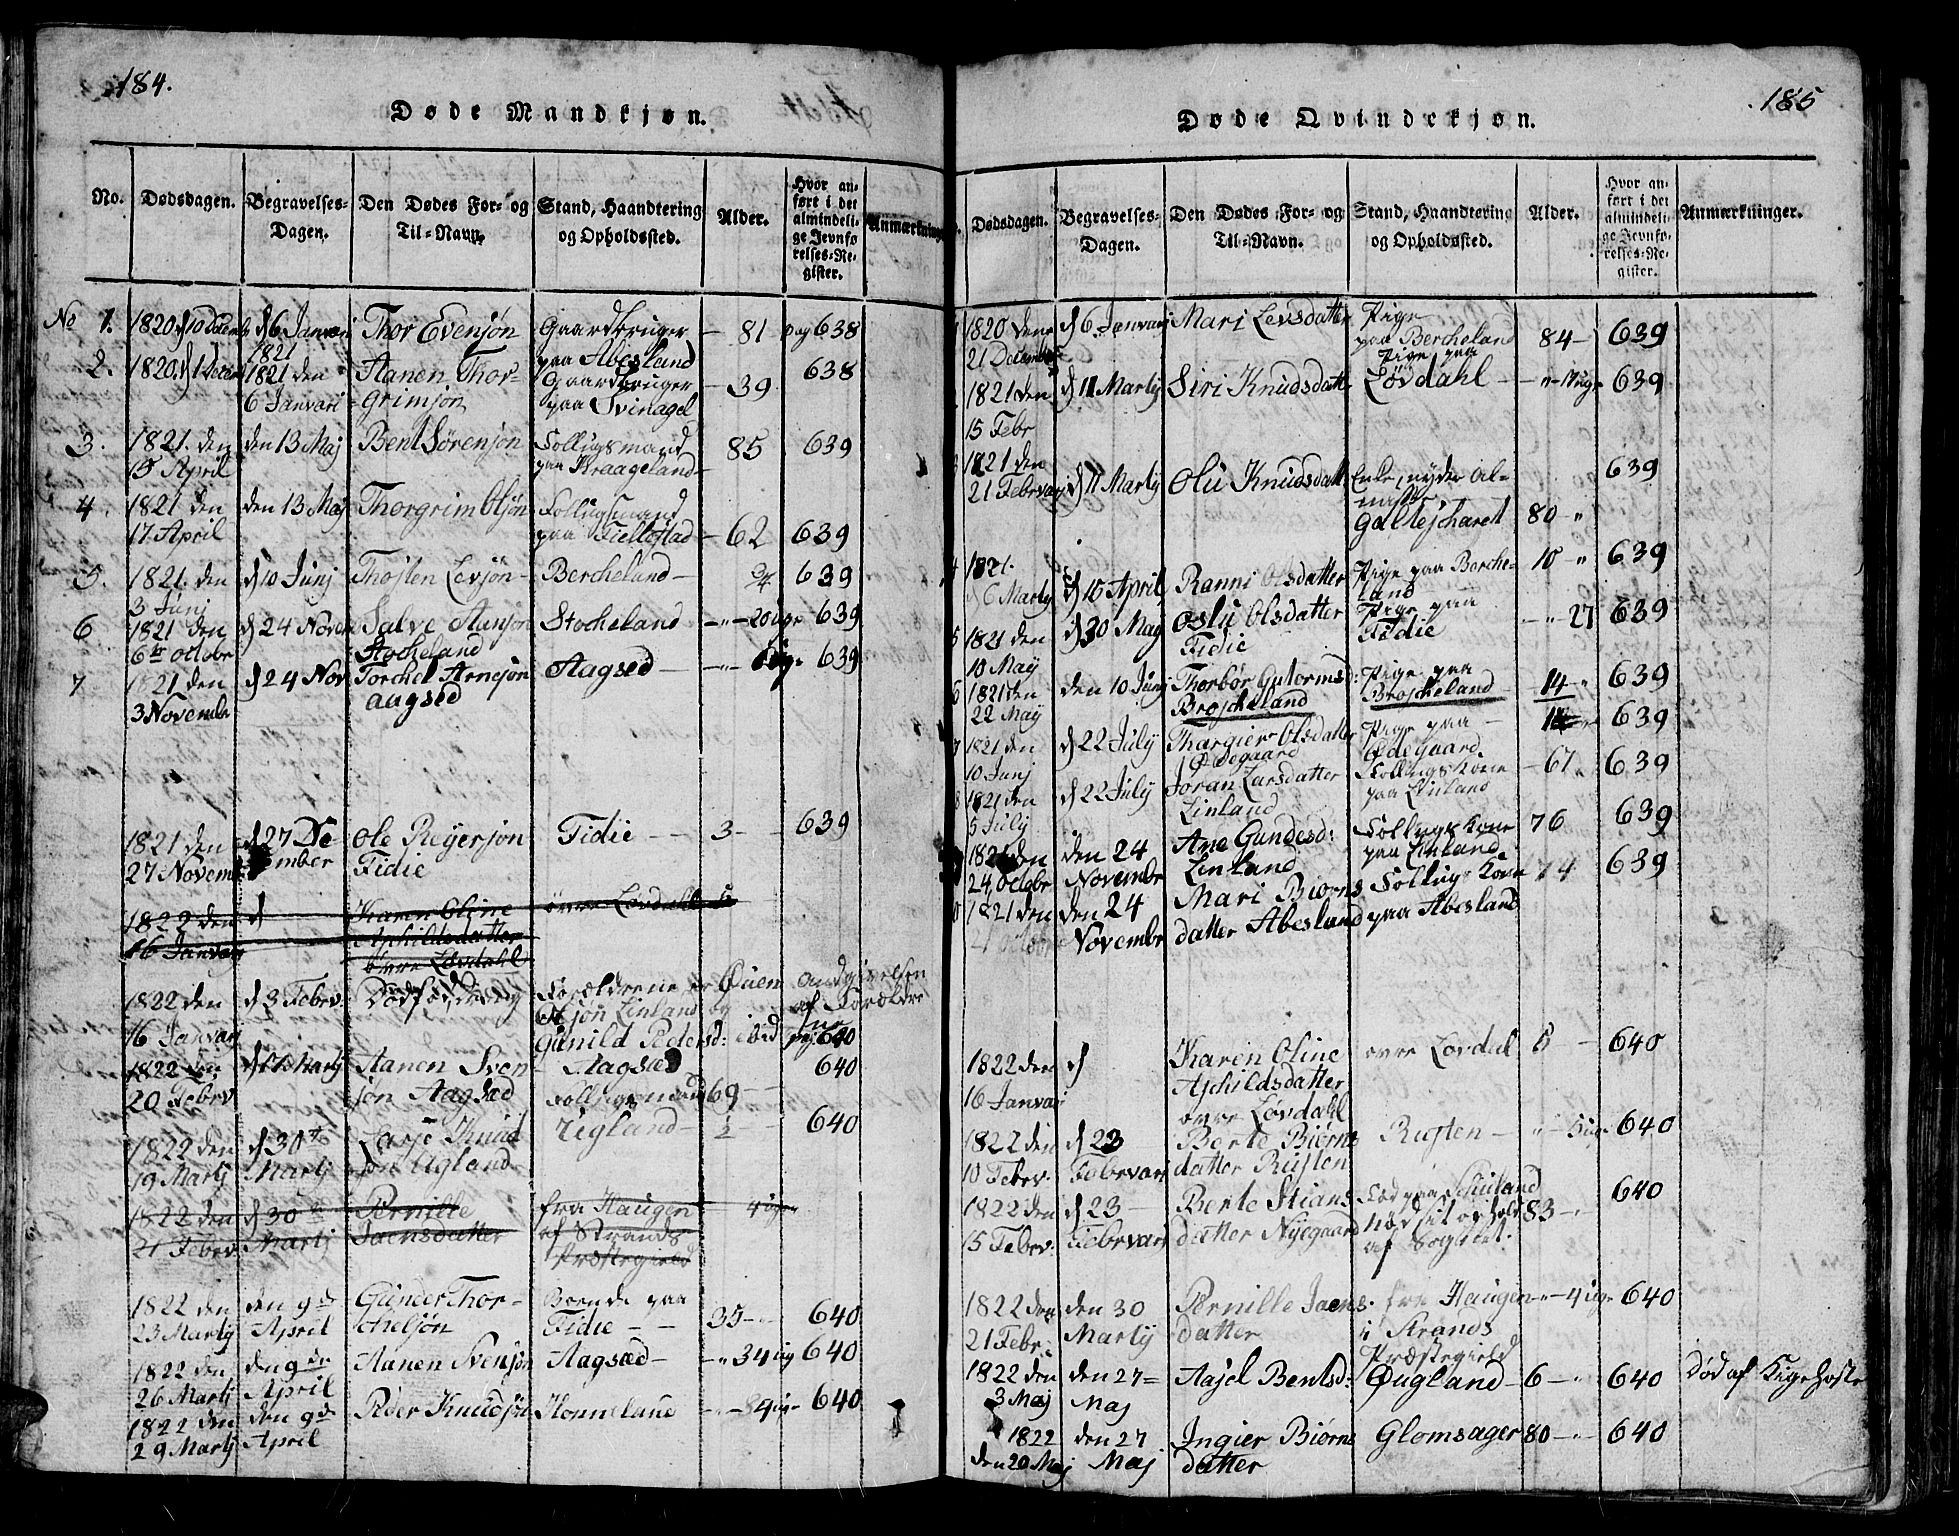 184.
Døde Mandkjøn.
No. Dødsdagen. Begravelses-Dagen. Den Dødes For- og Til-Navn. Stand, Haandtering og Opholdssted. Alder. Hvor anført i det almindelige Jevnførelses-Register. Anmærkninger
No 1. 1820 d 10 Decemb d 6 Januari 1821 Thor Evensøn Gaardbruger paa Abesland 81 pag 638
2. 1820 d 1 Decem 1821 den 6 Januari Aanen Thorgrimsøn Gaardbruger paa Svinagel 39 638
3. 1821 den 15 April den 13 Maj Bent Sørensøn Follugsmand paa Kraageland 85 639
4. 1821 den 17 April den 13 Maj Thorgrim Olsøn Follugsmand paa Fieltstad 62 639
5. 1821 den 3 Junj d 10 Junj Thosten Levsøn Bercheland 639
6 1821 den 6te Octobr d 24 Novem Salve Aansøn Stocheland Stocheland 20 ug 639
7 1821 den 3 Novembr d 24 Nov Torchel Arnesøn Aagsed Aagsed 639
1821 den 27 Novemb d 27 December Ole Reyersøn Fidie Fidie 3 639
1822 den 16 Januari d Karen Oline Aschildsdatter övre Lövdahl övre Lövdahl 5
1822 den 16 Januari d 3 Febrv: Dödfödt dreng Forældrene er Ouen Linland og Gunild Pedersd: ibid Andgivelsen af Forældrene pag 640
1822 den 20 Febrv Martij Aanen Svensøn Aagsæd Aagsæd Follugsmand 69 640
1822 den 19 Martj d 30te Martj Tarje Knudsøn Ugland Uigland ½ 640
1822 den 21 Febrv d 30te Martj Pernille Jaensdatter fra Haugen af Strands Præstegield 4 ugr
1822 den 23 Martj den 9de April Gunder Thorchelsøn Boende paa Fidie 35 640
1822 den 26 Martj den 9de April Aanen Svensøn Aagsæd 34 ug 640
1822 den 29 Martj den 9de April Peder Knudsøn Honneland 640
185
Døde Qvindekjøn.
Dødsdagen. Begravelses-Dagen. Den Dødes For- og Til-Navn. Stand, Haandtering og Opholdssted. Alder. Hvor anført i det almindelige Jevnførelses-Register. Anmærkninger.
1820 den 21 December d 6 Januari Mari Levsdatter Pige paa Bercheland 84 639
1821 den 15 Febr d 11 Martij Siri Knudsdatt Pige paa Lövdahl 639
1821 den 21 Febrvari d 11 Martij Olü Knudsdatt Enke, nyder Almisse 80 639
4 1821. d 6 Martij d 15 April Ranni Olsdatter Pige paa Bercheland 10 639
5 1821 den 10 Maij d 30 Maij Oslü Olsdatter Fidie Pige paa Fidie 27 639
6 1821 den 22 Maij den 10 Junj Thorbör Gutormsd: Broscheland Pige paa Broscheland 14 639
7 1821 den 10 Junj d 22 Julij Thargier Olsdatter Ödegaard Pige paa Ödegaard 639
8 1821 den 5 Julij d 22 Julij Joran Larsdatter Linland Follugs Kone paa Linland 67 639
1821 den 24 Octobr den 24 Novembr Ane Gundesd: Linland Follugs Kone paa Linland 76 639
1821 den Octobr den 24 Novembr Mari Biørnsdatter Abesland Follugs Kone paa Abesland 74 639
1822 den 16 Januari d Karen Oline Aschildsdatter övre Lövdahl övre Lövdal 5 640
1822 den 10 Febrv. d 23 Febrvari Berte Biørnsdatter Rusten Rusten 640
1822 den 15 Febrv: d 23 Febrvari Berte Stiansdatter Nyegaard Föd paa af Sognet. 83 640
1822 den 21 Febr: den 30 Martij Pernille Jaensdatter fra Haugen i Strands Præstegield 4 ugr 640
1822 den 3 Maj den 27 Maj Aasel Bentsd: Øugland 6 640 Död af Kigehoste
1822 den 20 Maj den 27 Maj Ingier Biørnsdatter Glomsager 80 640